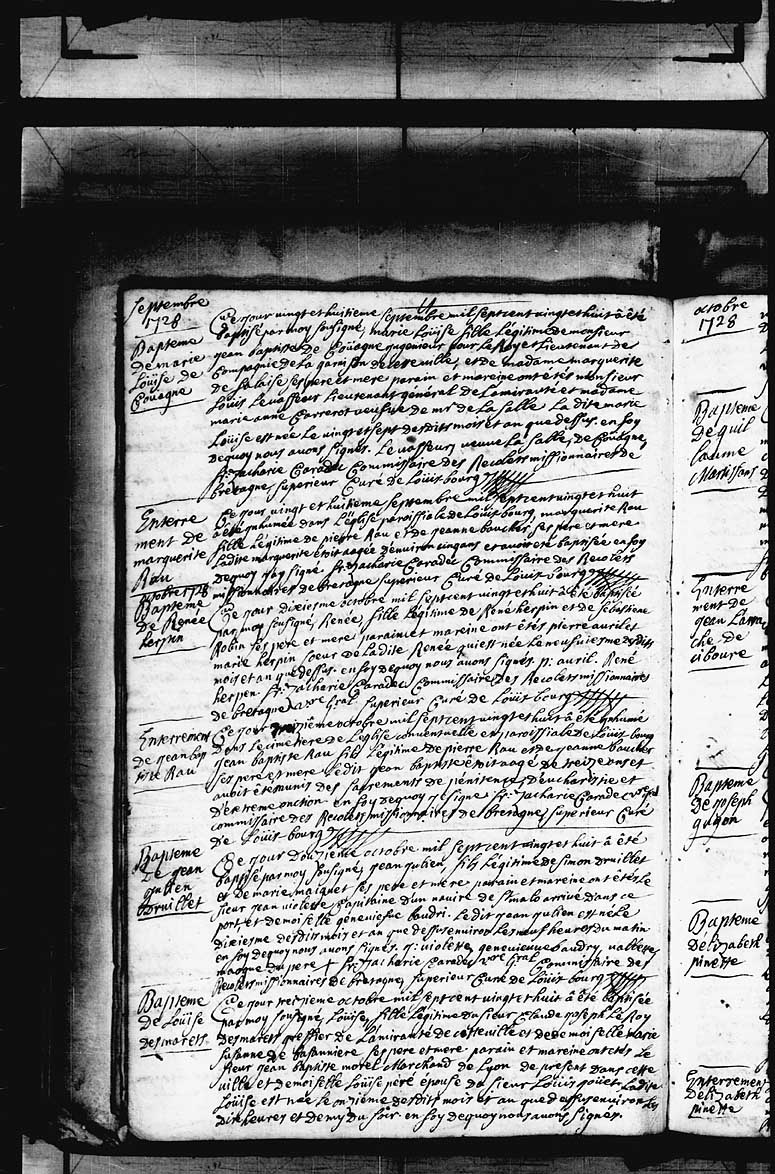 septembre
1728
Bapteme
de marie
Loüise de
Coüagne
Ce jour vingt et huitieme septembre mil sept cent vingt et huit à été
baptisé par moy sousigné, marie Loüise fille Légitime de monsieur
jean baptiste De Coüagne jngenieur pour Le Roy et Lieutenant des
Compagnie de La garnison de cette ville, et de madame marguerite
de La laise ses pere et mere parain et mareine ont etés monsieur
Loüis Levasseur Lieutenant général de Lamirauté et madame
marie anne Carrerot veufue de mr de La Salle La dite marie
Loüise est née Le vingt et sept desdits mois et an que dessus. en foy
dequoy nous avons signés. Levasseur, veuve La Salle, De Coüagne
fr. Zacharie Caradec Commissaire des Recolets missionnaires de
bretagne, superieur Curé de Loüisbourg
Enterre
ment de
marguerite
Rau
Ce jour vingt et huitieme septembre mil sept cent vingt et huit
à été jnhumée dans L'église paroissiale de Loüisbourg, marguerite Rau
fille Légitime de pierre Rau et de jeanne boucher ses pere et mere
Ladite marguerite étoit aagée denviron cinq ans et avoir été baptisée en foy
dequoy jay signé fr. Zacharie Caradec Commissaire des Recolets
missionnaires de bretagne superieur Curé de Loüisbourg
octobre 1728
Bapteme
De Renée
herpin
Ce jour dixiesme octobre mil sept cent vingt et huit à été baptisée
par moy sousigné, Renée, fille Légitime de René herpin et de sebastiene
Robin ses pere et mere parain et mareine ont étés pierre auril et
marie herpin soeur de La dite Renée qui est née Le neufuiesme desdits
mois et an que dessus. en foy dequoy nous avons signés p: auril. René
herpen. fr. Zacharie Caradec Commissaire des Recolets missionnaires
de bretagne vre Gral superieur Curé de Loüisbourg
Enterrement
de jean bap
tiste Rau
Ce jour octobre mil sept cent vingt et huit à été jnhumé
Dans Le cimetiere de L'église conventuelle et paroissiale de Loüisbourg
jean baptiste Rau fils Légitime de pierre Rau et de jeanne boucher
ses pere et mere Ledit jean baptiste étoit aagé de treize ans et
avoit été munis des sacrements de pénitence, Deucharistie et
D'extreme onction en foy dequoy je signé fr. Zacharie Caradec vre Gral
commissaire des Recolets missionnaires de bretagne, superieur Curé
de Loüisbourg
Bapteme
De jean
julien
Druillet
Ce jour douzieme octobre mil sept cent vingt et huit à été
baptisé par moy sousigné, jean julien, fils Légitime de simon druillet
et de marie maiquet ses pere et mere parain et mareine ont étés Le
sieur jean violette Capitaine D'un navire de st malo arrivé dans ce
port et demoiselle génevieufue baudri. Le dit jean julien est né Le
dixiesme desdits mois et an que dessus environ Les neuf heures du matin
en foy dequoy nous avons signés. j: violette, genevieuve baudry, valleé,
marque du pere + fr. Zacharie Caradec vre Gral Commissaire des
Recolets missionnaires de bretagne, superieur Curé de Loüisbourg
Bapteme
de Loüise
desmarets
Ce jour treizieme octobre mil sept cent vingt et huit à été baptisée
par moy sousigné, Loüise, fille Légitime du sieur Claude joseph Le Roy
desmarets greffier de Lamirauté de cette ville et de demoiselle marie
susanne de basanniere ses pere et mere parain et mareine ont étés Le
sieur jean baptiste morel Marchand de Lyon de present dans cette
ville et demoiselle Loüise peré épouse du sieur Loüis goüet. Ladite
Loüise est née Le onzieme desdits mois et an que dessus environ Les
Dix heures et demy du soir en foy dequoy nous avons signés.
octobre
1728
Bapteme
De guil
laume
Martissans
Enterre
ment de
jean
che de
ciboure
Bapteme
De joseph
guyon
Bapteme
De Elizabeth
pinette
Enterrement
De Elizabeth
pinette